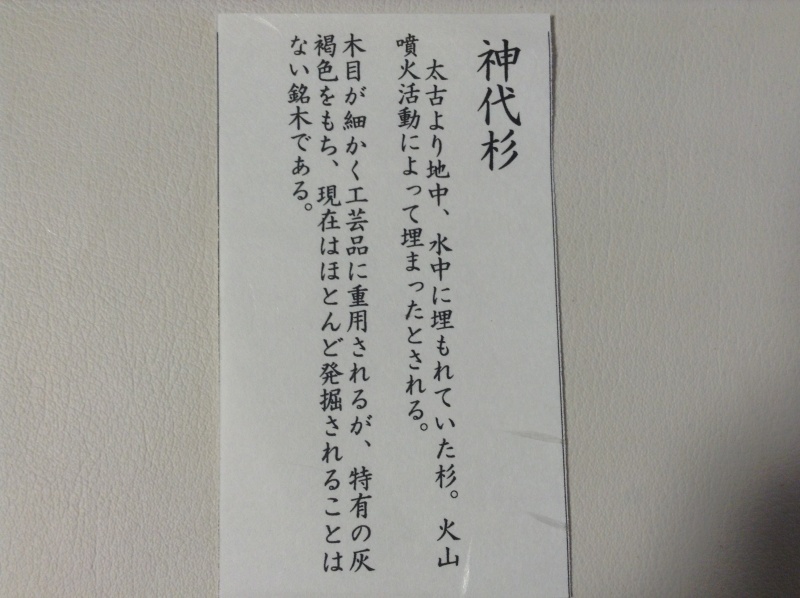 神代杉
太古より地中、水中に埋もれていた杉。火山
噴火活動によって埋まったとされる。
木目が細かく工芸品に重用されるが、特有の灰
褐色をもち、現在はほとんど発掘されることは
ない銘木である。